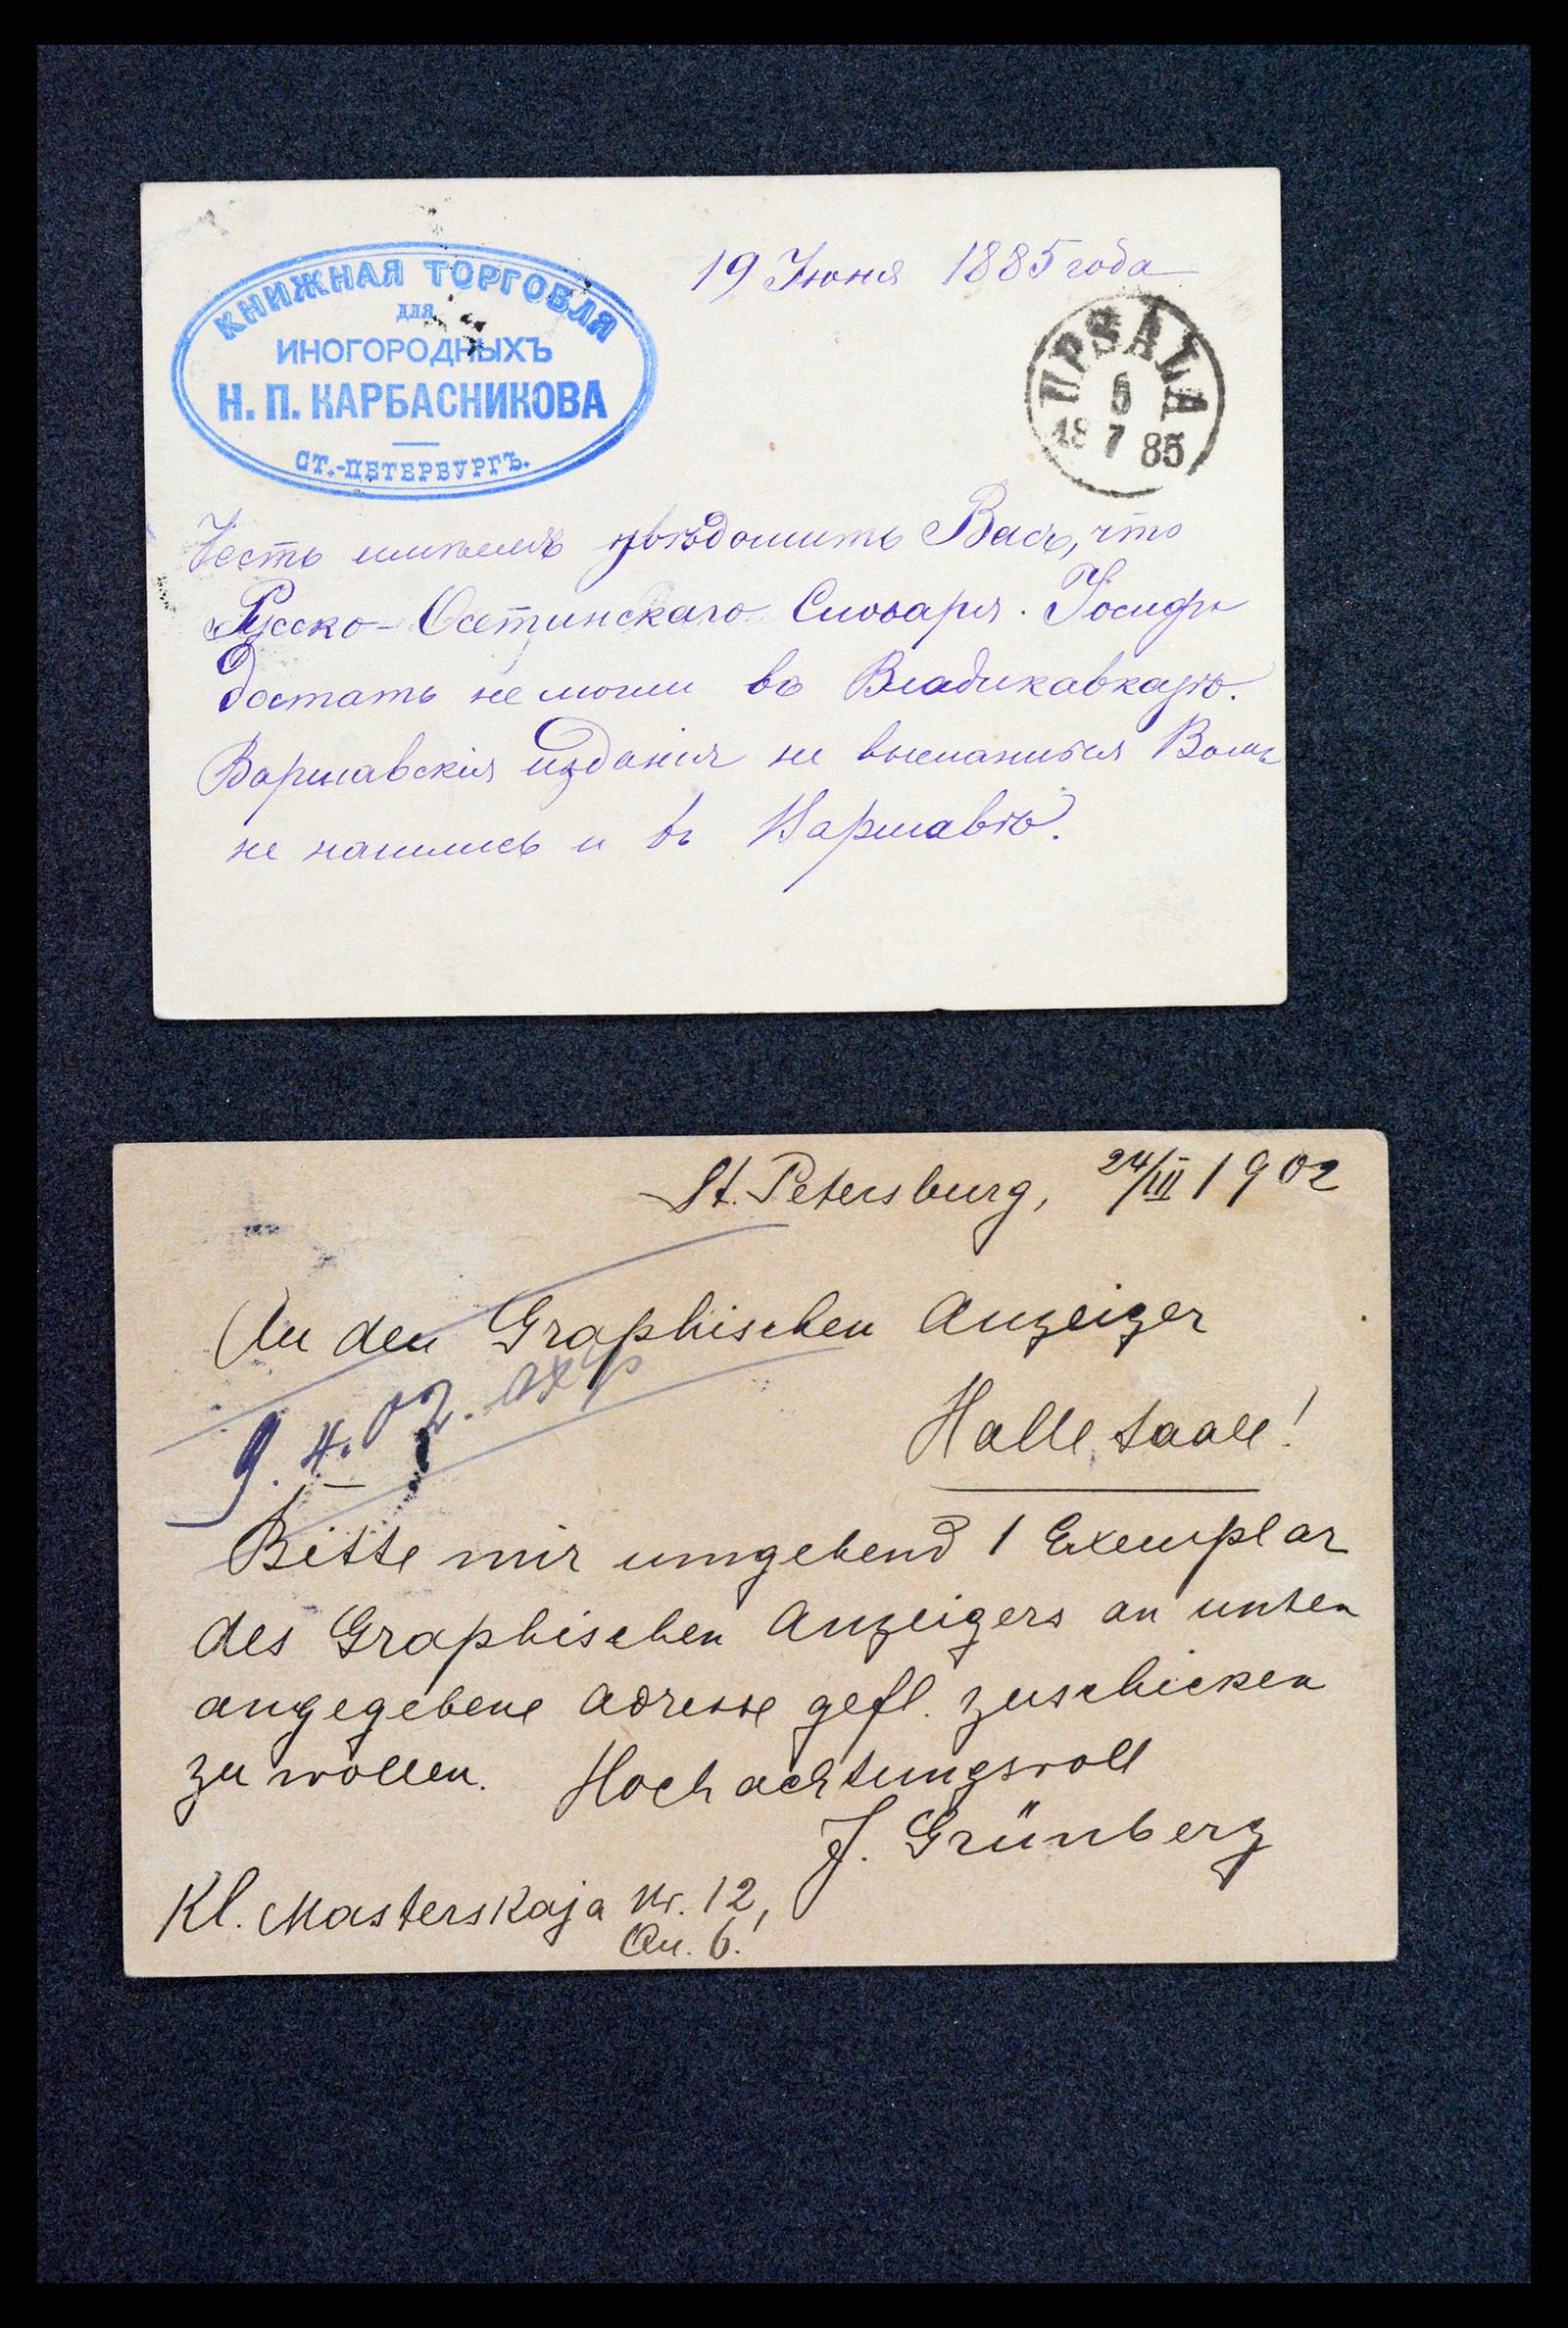 КНИЖНАЯ ТОРГОВЛЯ
ДЛЯ
ИНОГОРОДНЫХЪ
Н. П. КАРБАСНИКОВА
СТ.-ПЕТЕРБУРГЪ.
19 Июня 1885 года
UPSALA
6
18 7 85
Честь имѣемъ увѣдомить Васъ, что
Русско-Осетинскаго Словаря. Iосифа
достать не могли въ Владикавказѣ.
Варшавскія изданія не
не нашлись и въ Варшавѣ.
St. Petersburg, 24/III 1902
An den Graphischen Anzeiger
Halle, Saale!
9. 4. 02.
Bitte mir umgehend 1 Exemplar
des Graphischen Anzeigers an unten
angegebene Adresse gefl. zuschicken
zu wollen. Hochachtungsvoll
J. Grünberg
Kl. Masterskaja Nr. 12,
Qu. 6.